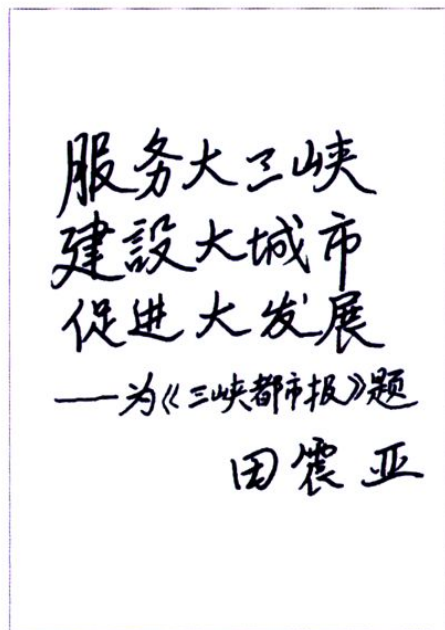 服务大三峡
建設大城市
促进大发展
——为《三峡都市报》题
田震亚